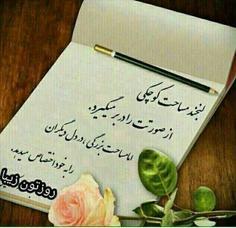 لبخند مساحت کوچکی
از صورتت را در بر میگیرد.
اما مساحت بزرگی در دل دیگران
را به خود اختصاص میدهد.
روزتون زیبا